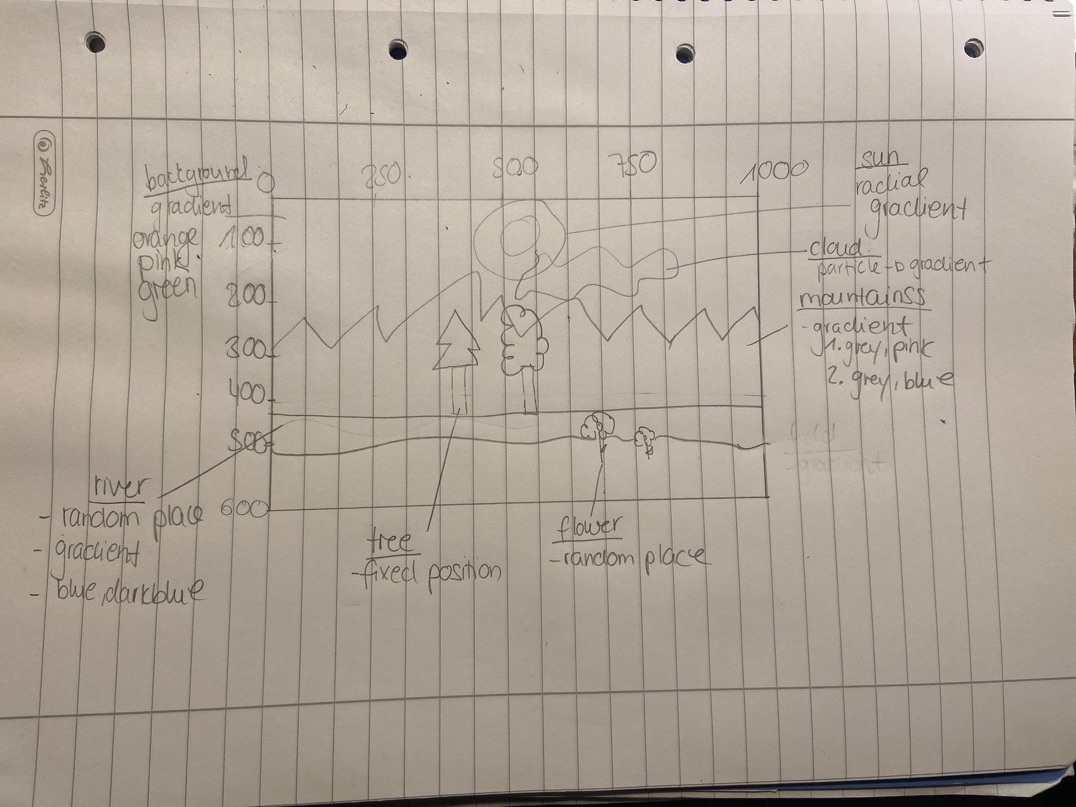 background
gradient
orange
pink
green
0
250
500
750
1000
100
200
300
400
500
600
sun
radial
gradient
cloud:
particle → gradient
mountainss
- gradient
1. grey, pink
2. grey, blue
river
- random place
- gradient
- blue, darkblue
tree
- fixed position
flower
- random place